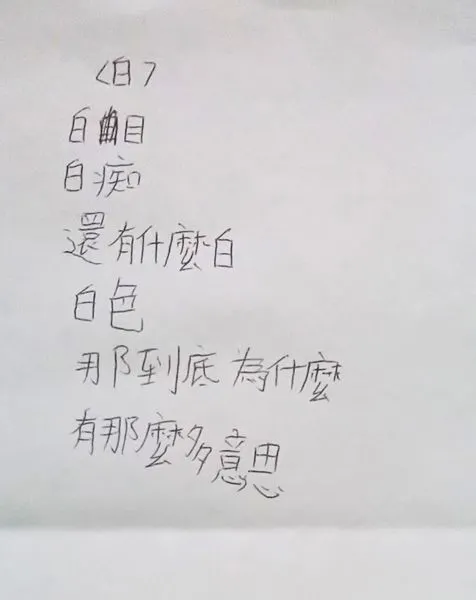 〈白〉
白目
白痴
還有什麼白
白色
那到底為什麼
有那麼多意思